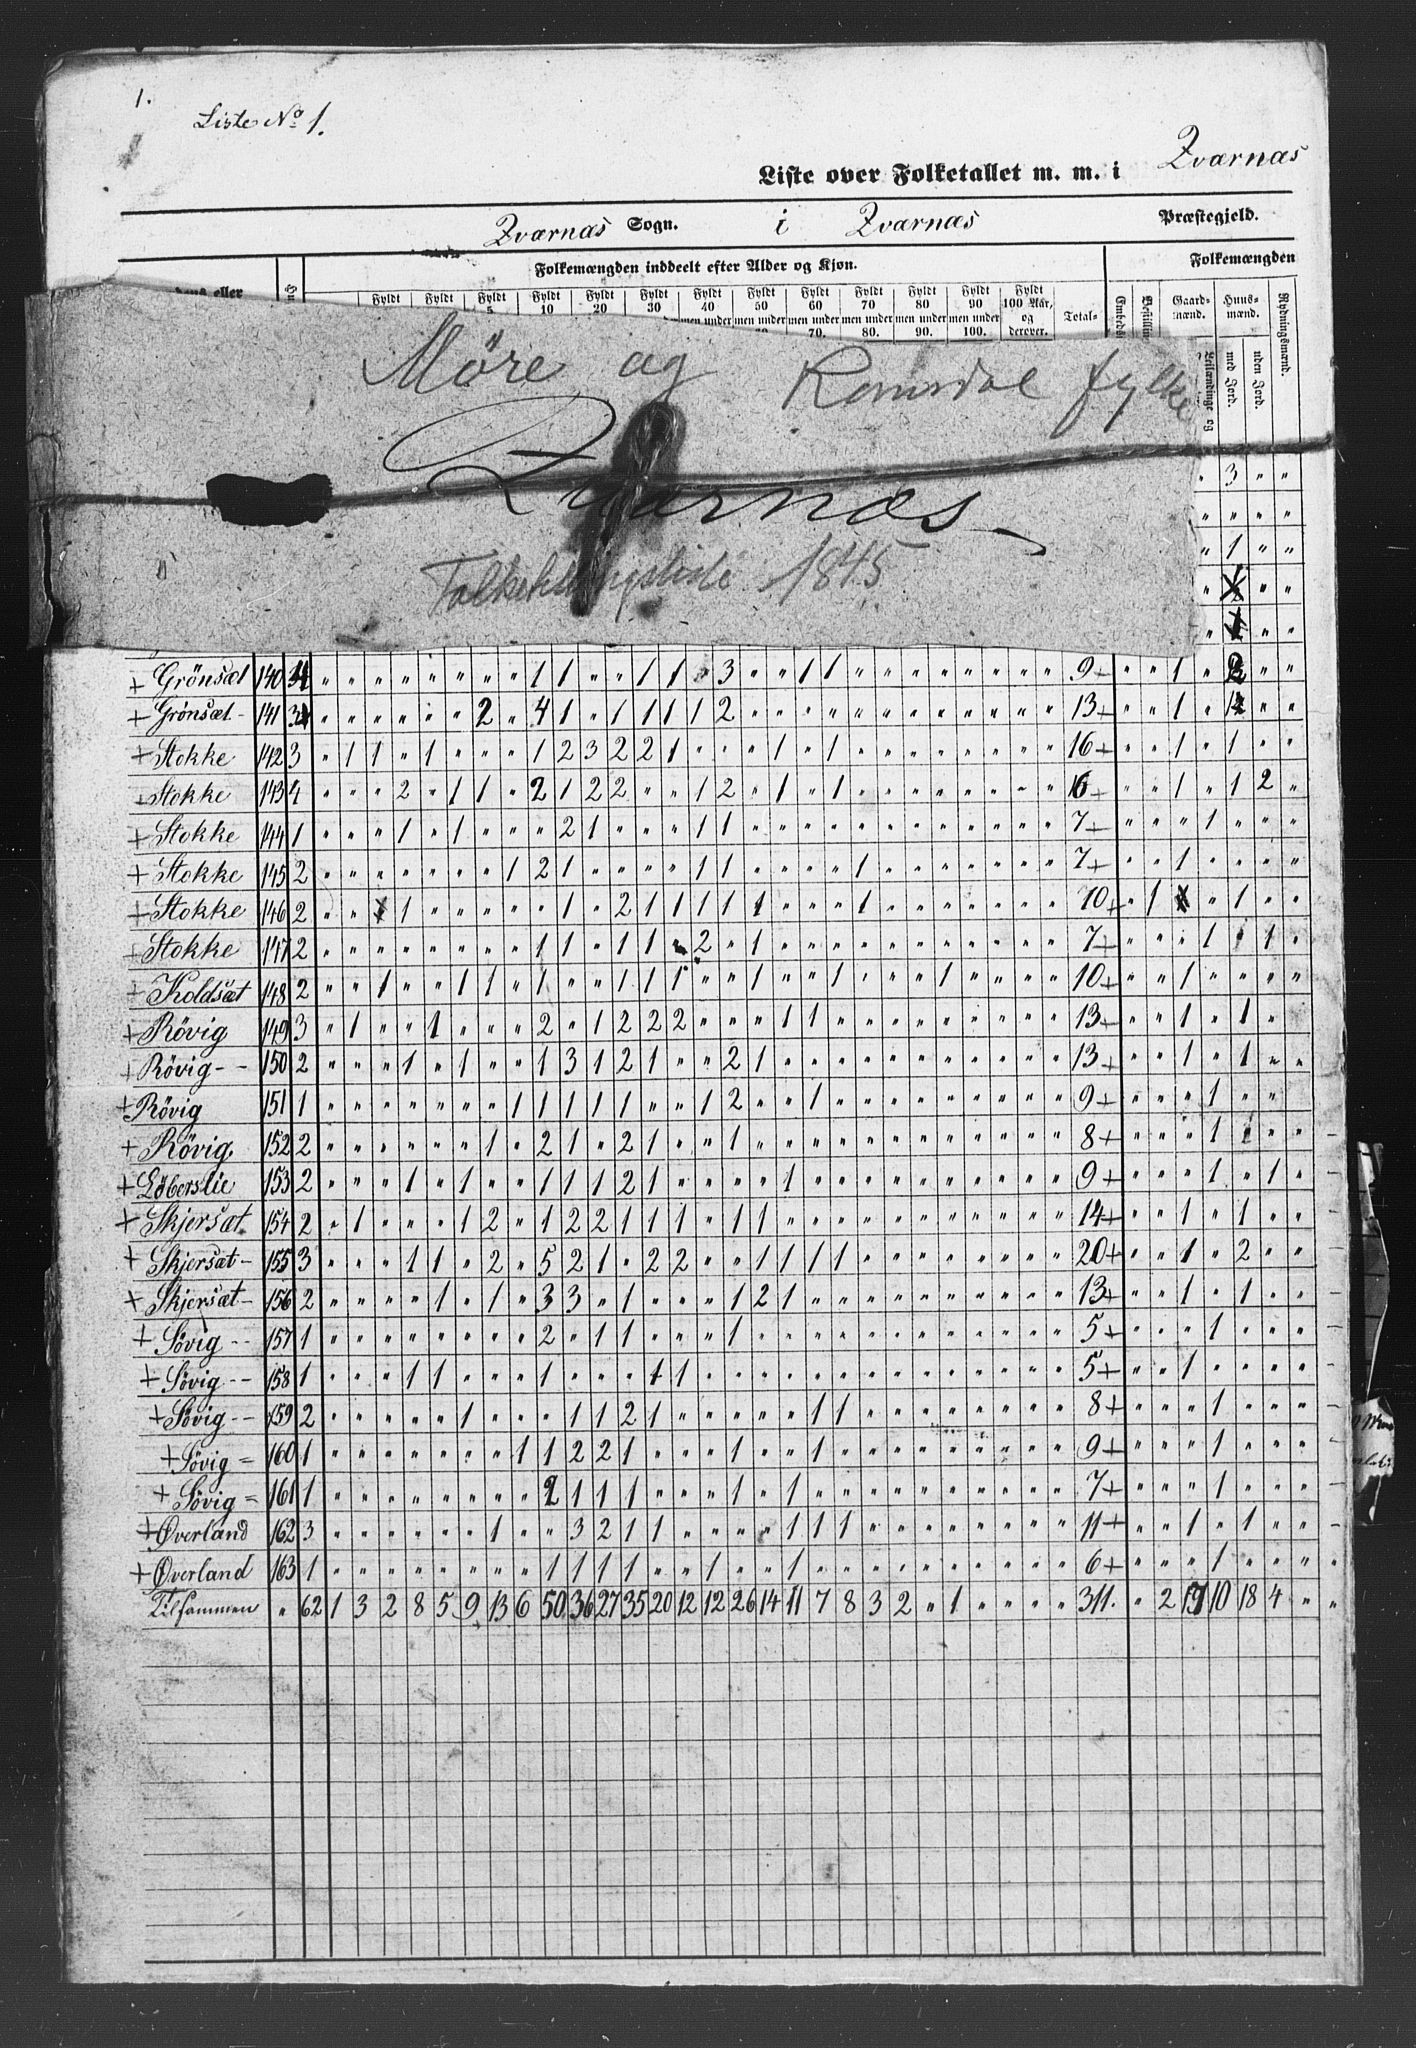 1.
Liste No 1.
Liste over Folketallet m. m. i Qværnæs
Qværnæs Sogn. i Qværnæs Præstegjeld.
Folkemængden inddeelt efter Alder og Kjøn. Folkemængden
eller
Fyldt Fyldt Fyldt 5 Fyldt 10 Fyldt 20 Fyldt 30 Fyldt 40 Fyldt 50 Fyldt 60 Fyldt 70 Fyldt 80 Fyldt 90 Fyldt 100 Aar, og derover. Total- Gaardmænd. Huusmænd. Rydningsmænd.
men under men under men under 70. men under 80. men under 90. men under 100.
Leilændinge og med Jord. uden Jord.
Möre og Romsdal fylke
Qværnæs
Folketellingsliste 1845
" 3 " "
" " " "
" 1 " "
+ Grönsæt 140 " " " " " " " " 1 1 " " 1 1 " 3 " " 1 1 " " " " " " " " 9 + " " 1 " 2 " "
+ Grönsæt - 141 " " " " " " 2 " 4 1 " 1 1 1 1 2 " " " " " " " " " " " " 13 + " " 1 " " "
+ Stokke 142 3 " 1 1 " 1 " " " 1 2 3 2 2 1 " " " 1 " 1 " " " " " " " " 16 + " " 1 " 1 " "
+ Stokke 143 4 " " " 2 " 1 1 " 2 1 2 2 " " 1 2 " 1 " 1 " " " " " " " " 16 " " 1 " 1 2 "
+ Stokke 144 1 " " " 1 " 1 " " " 2 1 " " " 1 1 " " " " " " " " " " " " 7 + " " " 1 " " "
+ Stokke 145 2 " " " " " " " 1 2 1 " " " " 1 1 " " " " 1 " " " " " " " 7 + " " 1 " " " "
+ Stokke 146 2 " " 1 " " " " " 1 " 2 1 1 1 1 1 1 " " " 1 " " " " " " " 10 + " 1 " 1 " "
+ Stokke 147 2 " " " " " " " " 1 1 " 1 1 " 2 " 1 " " " " " " " " " " " 7 + " " " 1 1 "
+ Koldsæt 148 2 " " 1 " " 1 1 " 1 " " 1 1 1 " " 1 " " 1 " " " 1 " " " " 10 + " " 1 " " " "
+ Rövig 149 3 " 1 " " 1 " " " 2 " 1 2 2 2 " " " 1 1 " " " " " " " " " 13 + " " 1 " 1 "
+ Rövig - - 150 2 " " " 1 " 1 " " 1 3 1 2 1 " " 2 1 " " " " " " " " " " " 13 + " " 1 " 1 " "
+ Rövig 151 1 " " " " " " " 1 1 1 1 1 " " 1 2 " " 1 " " " " " " " " " 9 + " " " 1 " "
+ Rövig 152 2 " " " " " " 1 " 2 1 " 2 1 " " 1 " " " " " " " " " " " " 8 + " " " 1 " "
+ Löberslie 153 2 " " " 1 " 1 " " 1 1 1 2 1 " " " " 1 " " " " " " " " " " 9 + " " " 1 " 1 "
+ Skjersæt 154 2 " 1 " " " 1 2 " 1 2 2 1 1 1 " 1 1 " " " " " " " " " " " 14 + " " 1 " 1 " "
+ Skjersæt - 155 3 " " " 1 1 " 2 " 5 2 1 " 2 2 " " 1 1 1 1 " " " " " " " " 20 + " " 1 " 2 " "
+ Skjersæt - 156 2 " " " " 1 " 1 " 3 3 " 1 " " " 1 2 1 " " " " " " " " " " 13 + " " 1 " 1 " "
+ Sövig - - 157 1 " " " " " " " " 2 " 1 1 " " " 1 " " " " " " " " " " " " 5 + " " " 1 " " "
+ Sövig - - 158 1 " " " 1 1 " " " 1 " " " 1 1 " " " " " " " " " " " " " " 5 + " " 1 " " " "
+ Sövig - - 159 2 " " " " " 1 " " " 1 1 2 1 " " " " " 1 1 " " " " " " " " 8 + " " " 1 " " "
+ Sövig = 160 1 " " " " " " " 1 1 2 2 1 " " " 1 " " 1 " " " " " " " " " 9 + " " " 1 " " "
+ Sövig = 161 1 " " " " " " " " 2 1 1 1 " " " 1 " 1 " " " " " " " " " " 7 + " " " 1 " " "
+ Øverland 162 3 " " " " " " 1 " " 3 2 1 1 " " " " 1 1 1 " " " " " " " " 11 + " " 1 " 1 " "
+ Øverland 163 1 " " " " " " " " 1 1 1 1 " " 1 " " 1 " " " " " " " " " " 6 + " " " 1 " " "
Tilsammen " 62 1 3 2 8 5 9 13 6 50 36 27 35 20 12 12 26 14 11 7 8 3 2 " 1 " " " " 311. " 2 17 10 18 4 " "